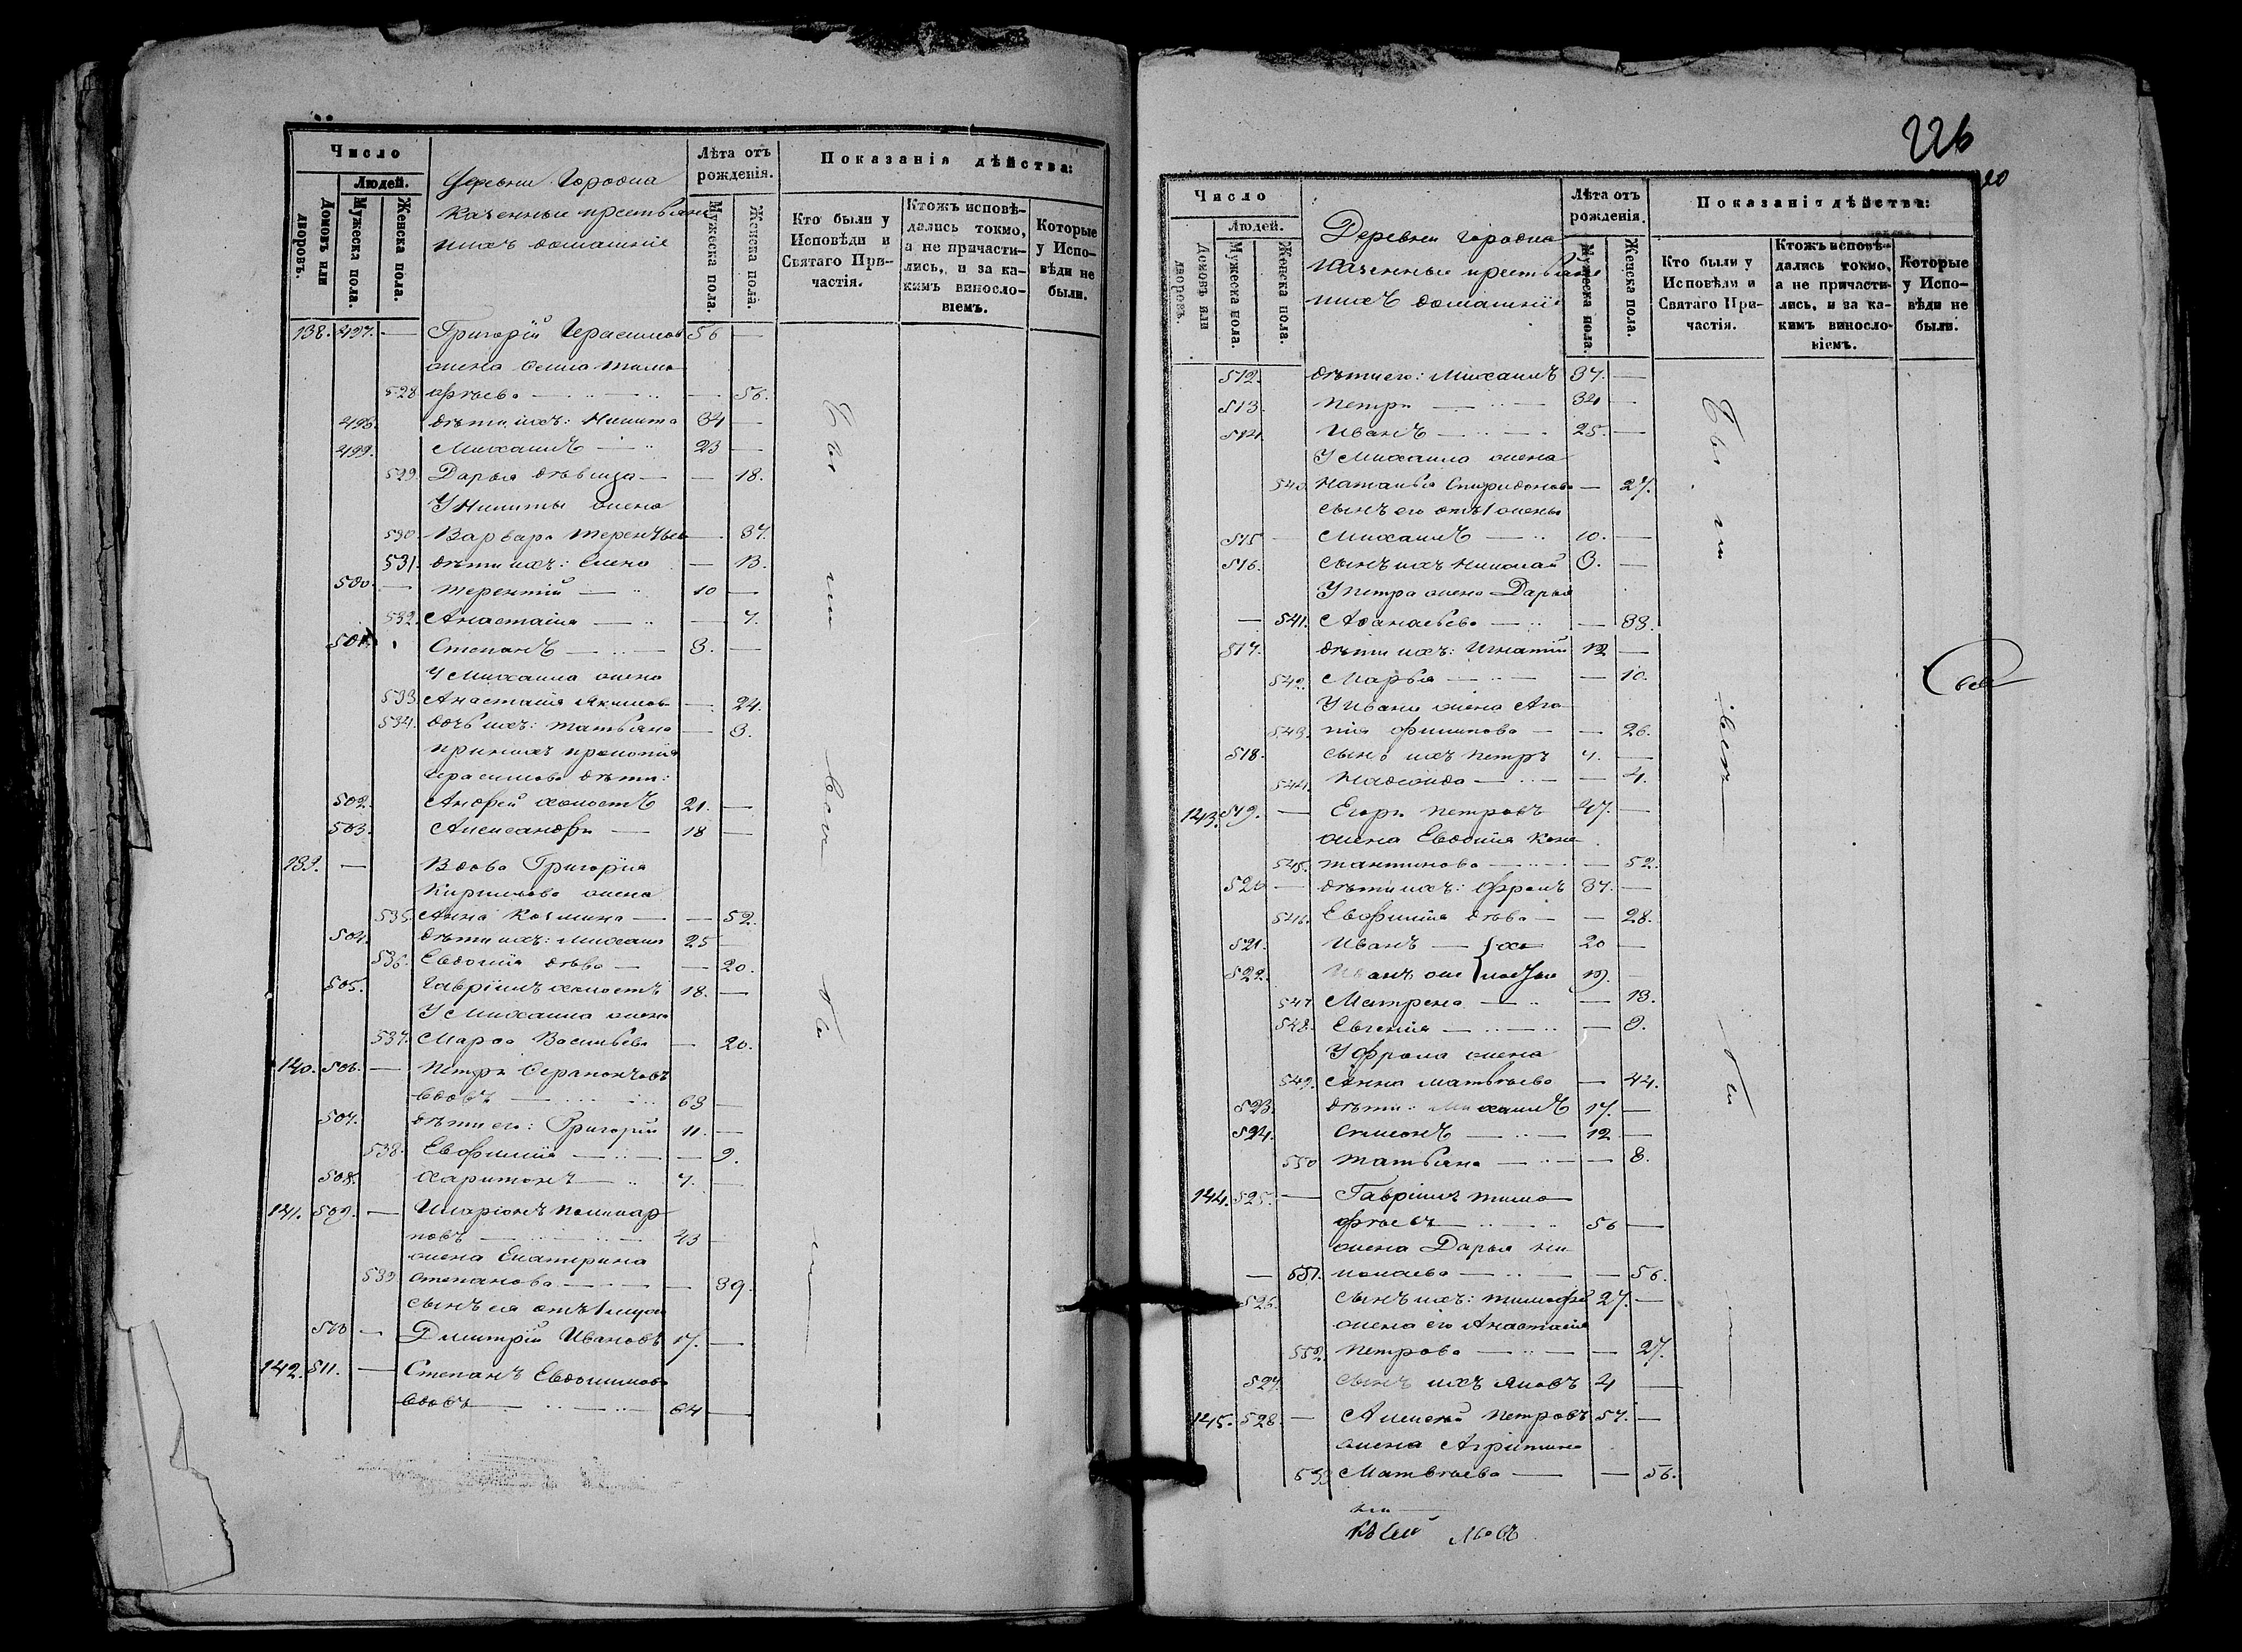 Число
Людей.
Домовъ или дворовъ.
Мужеска пола.
Женска пола.
Деревни Городна
Казенные крестьяне
ихъ домашніе
Лѣта отъ рожденія.
Мужеска пола.
Женска пола.
Показанія дѣйства:
Кто были у Исповѣди и Святаго Причастія.
Ктожъ исповѣдались токмо, а не причастились, и за какимъ винословіемъ.
Которые у Исповѣди не были.
138. 497. — Григорій Герасимов 56 —
жена Тимо
528 фѣева — — 56.
498. дѣти ихъ: Никита 34 —
499. Михаилъ — 23 —
529. Дарья дѣвица — — 18.
У Никиты жена
530 Варвара Терентьев — 37.
531. дѣти ихъ: Елена — 13.
500. — Терентій — 10 —
532. Анастасія — — 7.
501. Степанъ — 3. —
У Михаила жена
533 Анастасія Якимов — 24.
534. дочь ихъ: Татьяна — 3.
при нихъ Прокопія
Герасимова дѣти:
502. Андрей холостъ 21. —
503. Александръ — 18 —
139. — Вдова Григорія
Кирилова жена
535. Анна Козмина — — 52.
504. дѣти ихъ: Михаил 25 —
536. Евдокія дѣва — — 20.
505. Гавріилъ холостъ 18. —
У Михаила жена
537. Марѳа Васильева — 20.
140. 506. — Петръ
вдовъ — 63 —
507. дѣти его: Григорій 11. —
538. Евфимія — — 9.
508. Харитонъ — 7. —
141. 509. — Иларіонъ Поликар
повъ — 43 —
жена Екатерина
539 Степанова — — 39.
сынъ ея отъ 1 мужа
510 — Димитрій Ивановъ 17. —
142. 511. — Степанъ Евдокимовъ
вдовъ — 64 —
Были вси
226
Число
Людей.
Домовъ или дворовъ.
Мужеска пола.
Женска пола.
Деревни Городна
Казенные крестьяне
ихъ домашніе
Лѣта отъ рожденія.
Мужеска пола.
Женска пола.
Показанія дѣйства:
Кто были у Исповѣди и Святаго Причастія.
Ктожъ исповѣдались токмо, а не причастились, и за какимъ винословіемъ.
Которые у Исповѣди не были.
512. дѣти его: Михаилъ 37. —
513. Петръ — 34 —
514. Иванъ — 25. —
У Михаила жена
540. Наталья Спиридонова — 27.
сынъ его отъ 1 жены
515 — Михаилъ — 10. —
516. сынъ ихъ Николай 3. —
У Петра жена Дарья
— 541. Аѳанасьева — — 33.
517. дѣти ихъ: Игнатій 12 —
542. Марья — — 10.
У Ивана жена Ага
543. пія Филипова — — 26.
518. сынъ ихъ Петръ 4. —
544. — — 4.
143. 519. — Егоръ Петровъ 47. —
жена Евдокія Конс
545. тантинова — — 52.
520 — дѣти ихъ: Фролъ 37. —
546. Евфимія дѣва — — 28.
521. Иванъ — хо 20 —
522. Иванъ 19. —
547 Матрена — — 13.
548. Евгенія — — 9.
У Фрола жена
549. Анна Матвѣева — 44.
523. дѣти: Михаилъ 17. —
524. Симонъ — 12 —
550 Татьяна — — 8.
144. 525. — Гавріилъ Тимо
фѣевъ — 56 —
жена Дарья Ни
— 551. колаева — — 56.
526. сынъ ихъ: Тимофей 27. —
жена его Анастасія
552. Петрова — — 27.
527. сынъ ихъ Яковъ 4 —
145. 528. — Алексѣй Петровъ 57. —
жена Агрипина
553 Матвѣева — — 56.